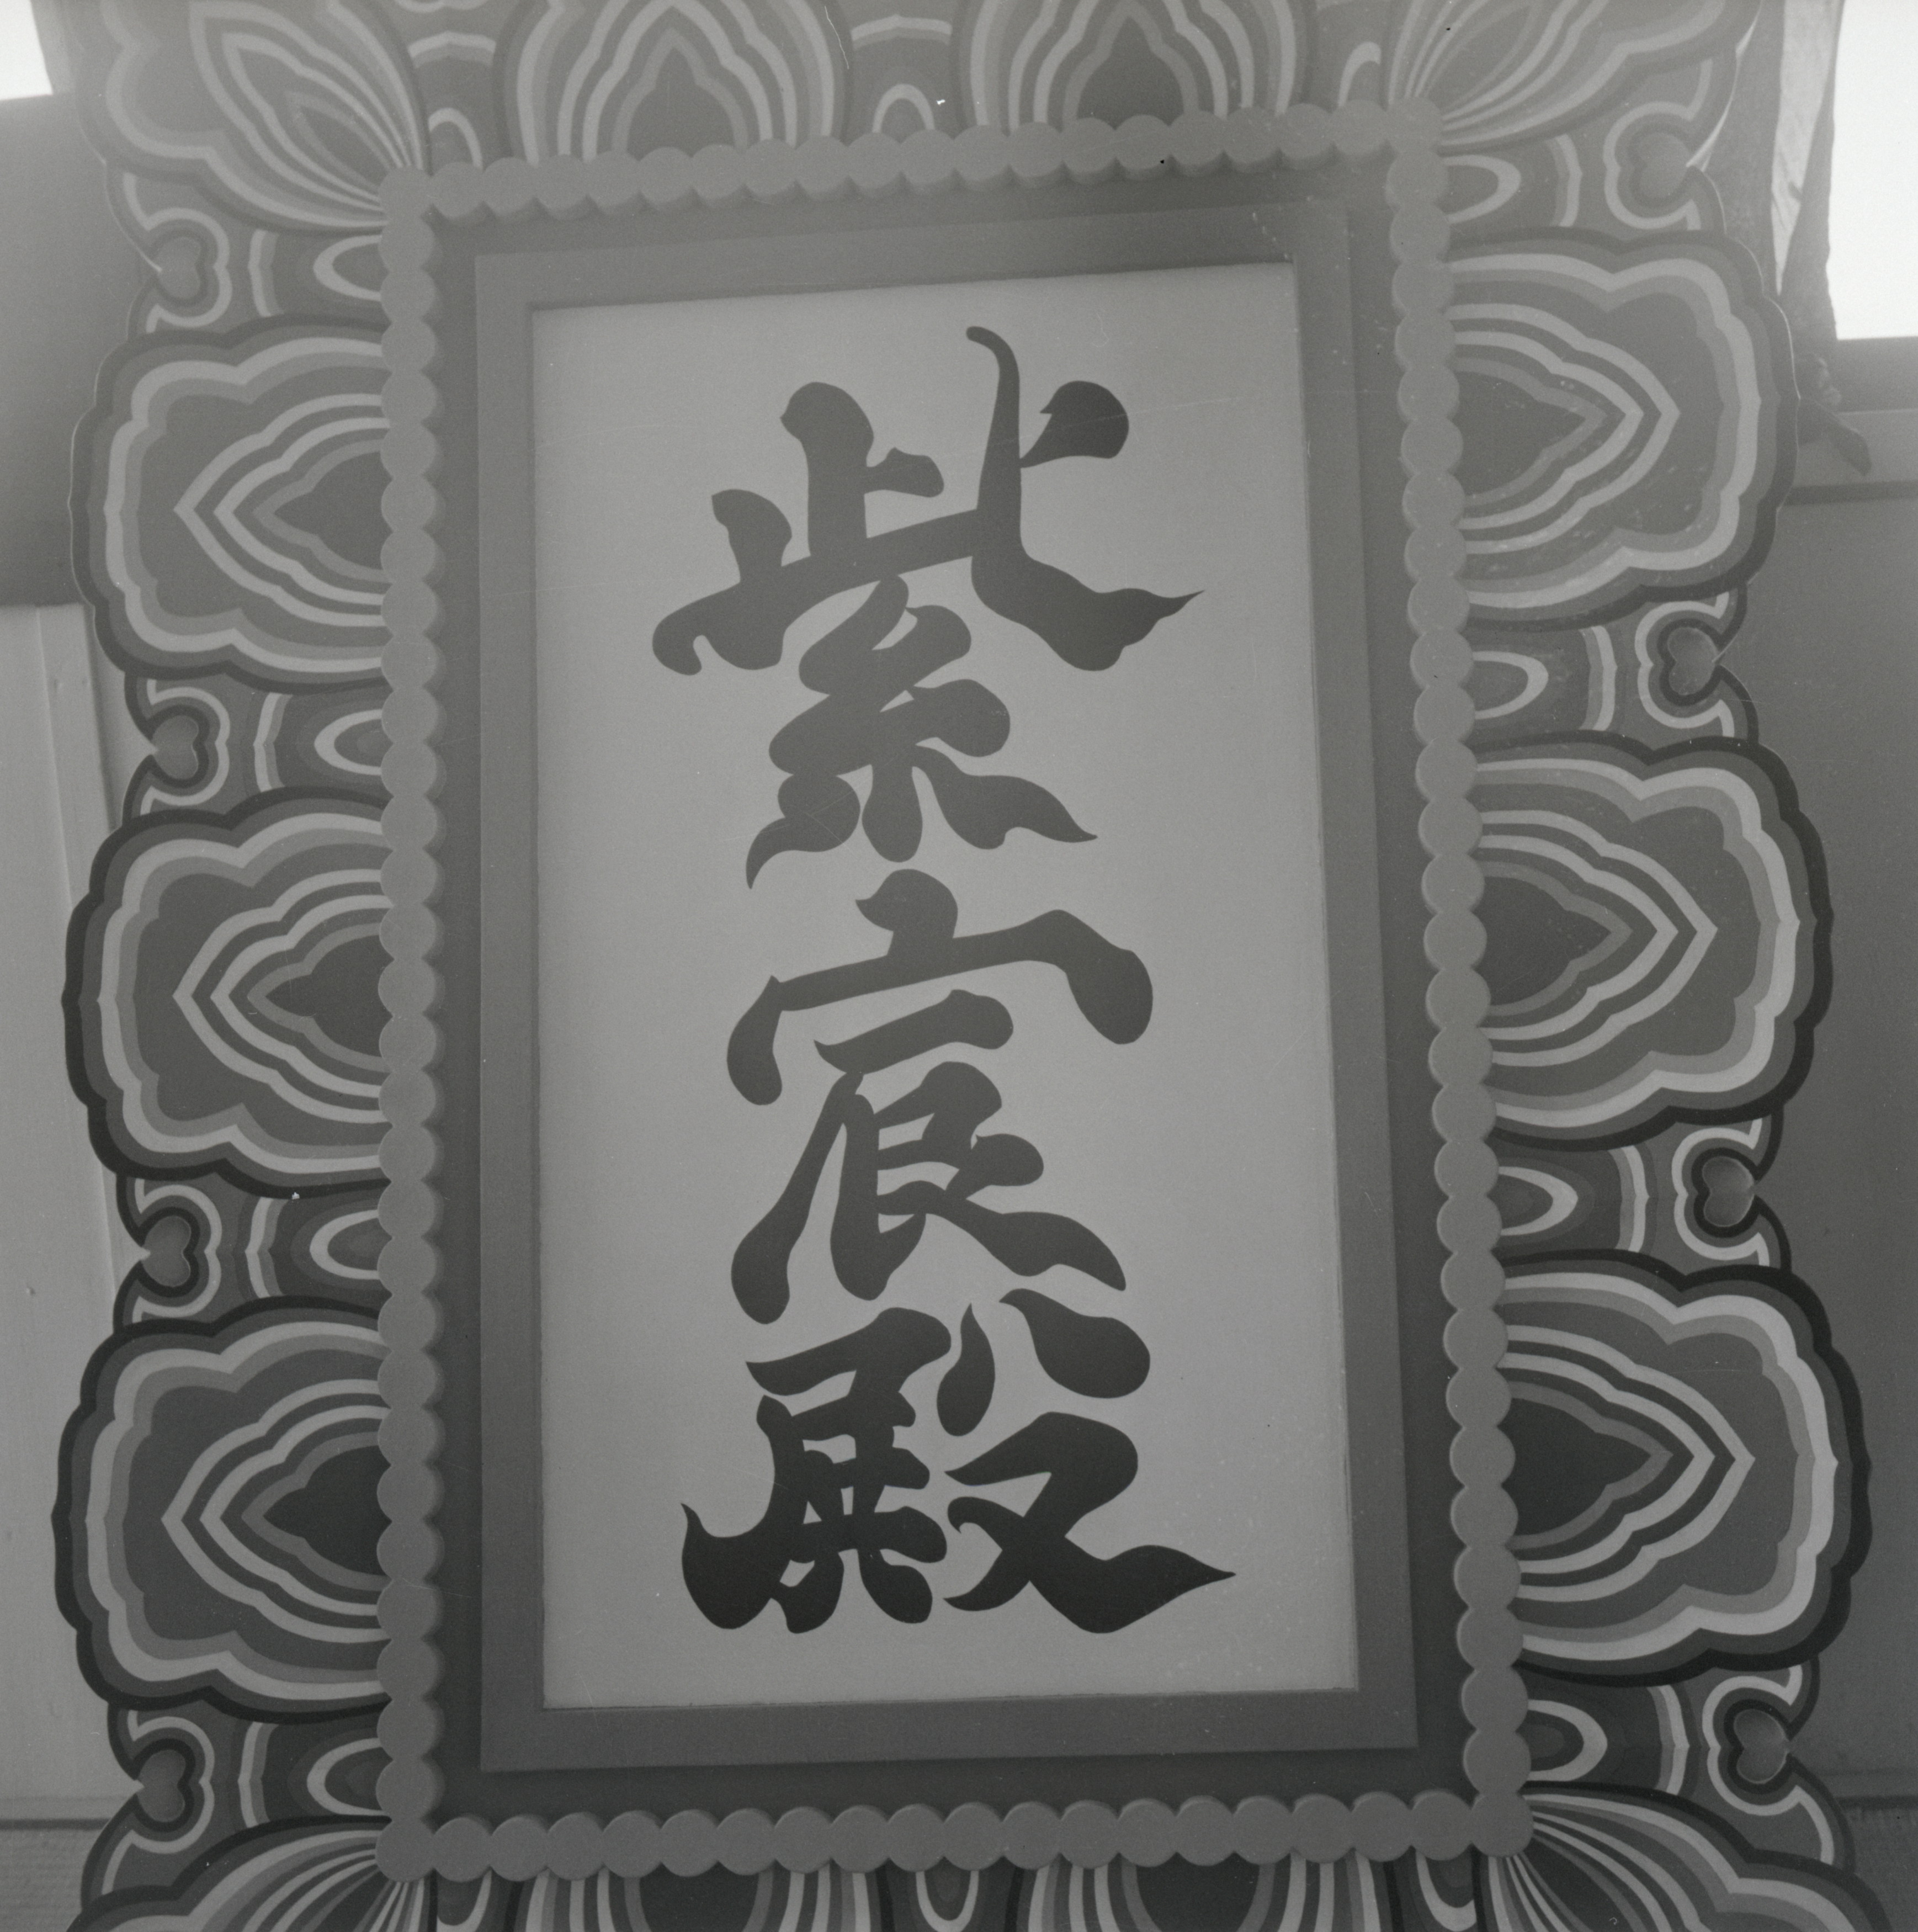 紫宸殿